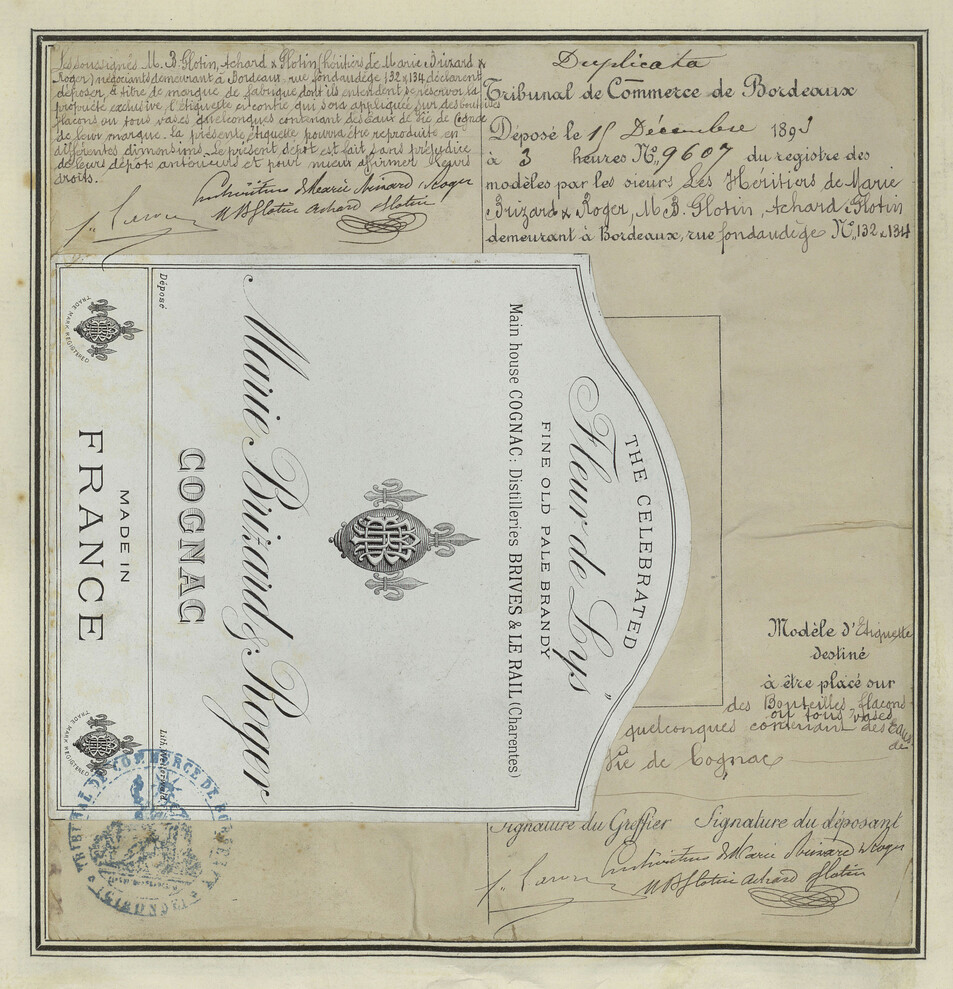 Les soussignés M. B. Glotin, Achard & Glotin (héritiers de Marie Brizard &
Roger) négociants demeurant à Bordeaux rue fondaudège 132 & 134 déclarent
déposer, à titre de marque de fabrique dont ils entendent se réserver la
propriété exclusive l'étiquette ci contre qui sera appliquée sur des bouteilles
flacons ou tous vases quelconques contenant des eaux de vie de Cognac
de leur marque. La présente étiquette pourra être reproduite en
différentes dimensions. Le présent dépôt est fait sans préjudice
de leurs dépôts antérieurs et pour mieux affirmer leurs
droits.
de Marie Brizard & Roger
M B Glotin Achard Glotin
Duplicata
Tribunal de Commerce de Bordeaux
Déposé le 15 Décembre 1893
à 3 heures N° 9607 du registre des
modèles par les sieurs Les Héritiers de Marie
Brizard & Roger, M. B. Glotin, Achard & Glotin
demeurant à Bordeaux, rue fondaudège N° 132 & 134
THE CELEBRATED
Fleur de Lys"
FINE OLD PALE BRANDY
Main house COGNAC: Distilleries BRIVES & LE RAIL (Charentes)
Marie Brizard & Roger
COGNAC
Déposé
MADE IN
FRANCE
TRADE MARK REGISTERED
TRADE MARK REGISTERED
Modèle d'Etiquette
destiné
à être placé sur
des Bouteilles, flacons
ou tous vases
quelconques contenant des Eaux
de
Vie de Cognac
Signature du Greffier Signature du déposant
de Marie Brizard & Roger
M B Glotin Achard Glotin
TRIBUNAL DE COMMERCE DE BORDEAUX
(GIRONDE)